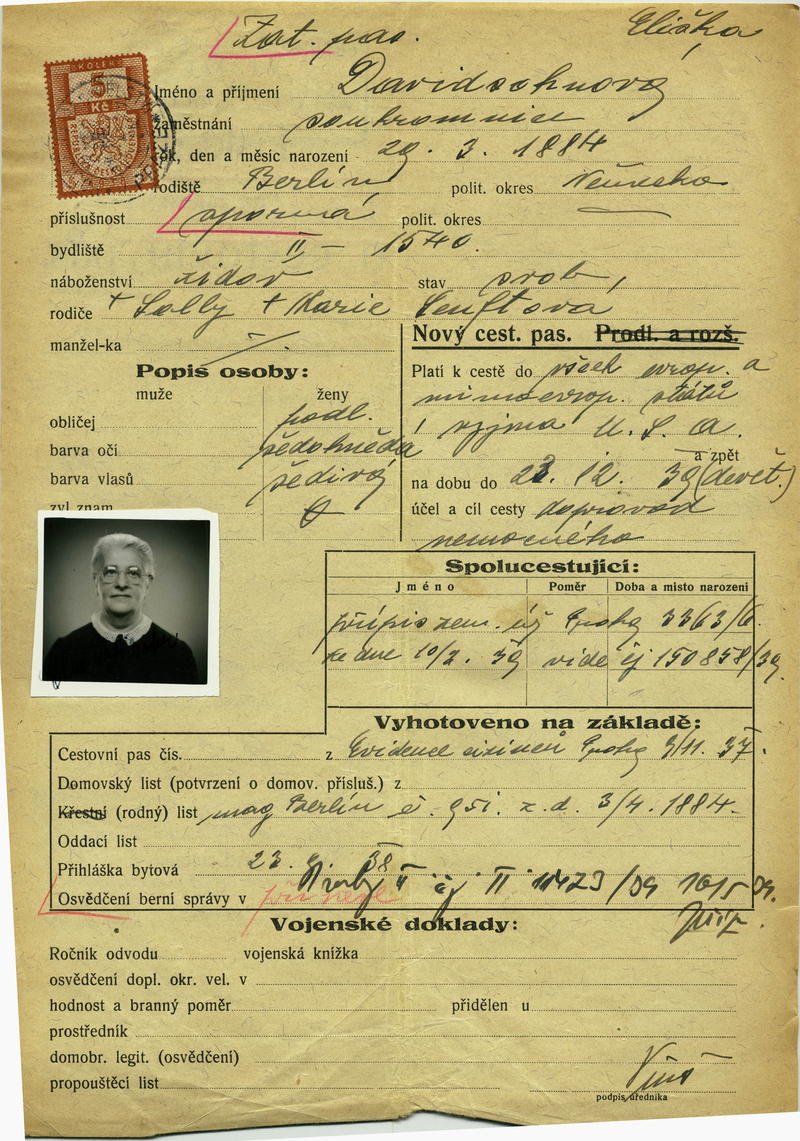 Zat. pas. Eliška
KOLEK
5
Kč
Jméno a příjmení Davidsohnová
zaměstnání soukromnice
rok, den a měsíc narození 29. 3. 1884
rodiště Berlín polit. okres Německo
příslušnost sporná polit. okres
bydliště II – 1540.
náboženství židov stav svob,
rodiče + Solly + Marie Senftova
manžel-ka
Nový cest. pas. Prodl. a rozš.
Popis osoby:
muže ženy
obličej podl.
barva očí šedohnědá
barva vlasů šedivá
zvl. znam. 0
Platí k cestě do všech evrop. a
mimoevrop. států
vyjma U. S. A.
a zpět
na dobu do 23. 12. 39 (devět.)
účel a cíl cesty doprovod
nemocného
Spolucestující:
Jméno Poměr Doba a místo narození
přípis zem. úř Prahy 3363/6.
ze dne 10/2. 39 vide čj 150858/39
Vyhotoveno na základě:
Cestovní pas čís. z Evidence cizinců Prahy 9/11. 37.
Domovský list (potvrzení o domov. přísluš.) z
Křestní (rodný) list mag Berlín č. 951. z. d. 3/4. 1884.
Oddací list
Přihláška bytová 23. 38
Osvědčení berní správy v přinese Prahy II čj II 11423/39 16/5 39.
Vojenské doklady:
Ročník odvodu vojenská knížka
osvědčení dopl. okr. vel. v
hodnost a branný poměr přidělen u
prostředník
domobr. legit. (osvědčení)
propouštěcí list
podpis úředníka